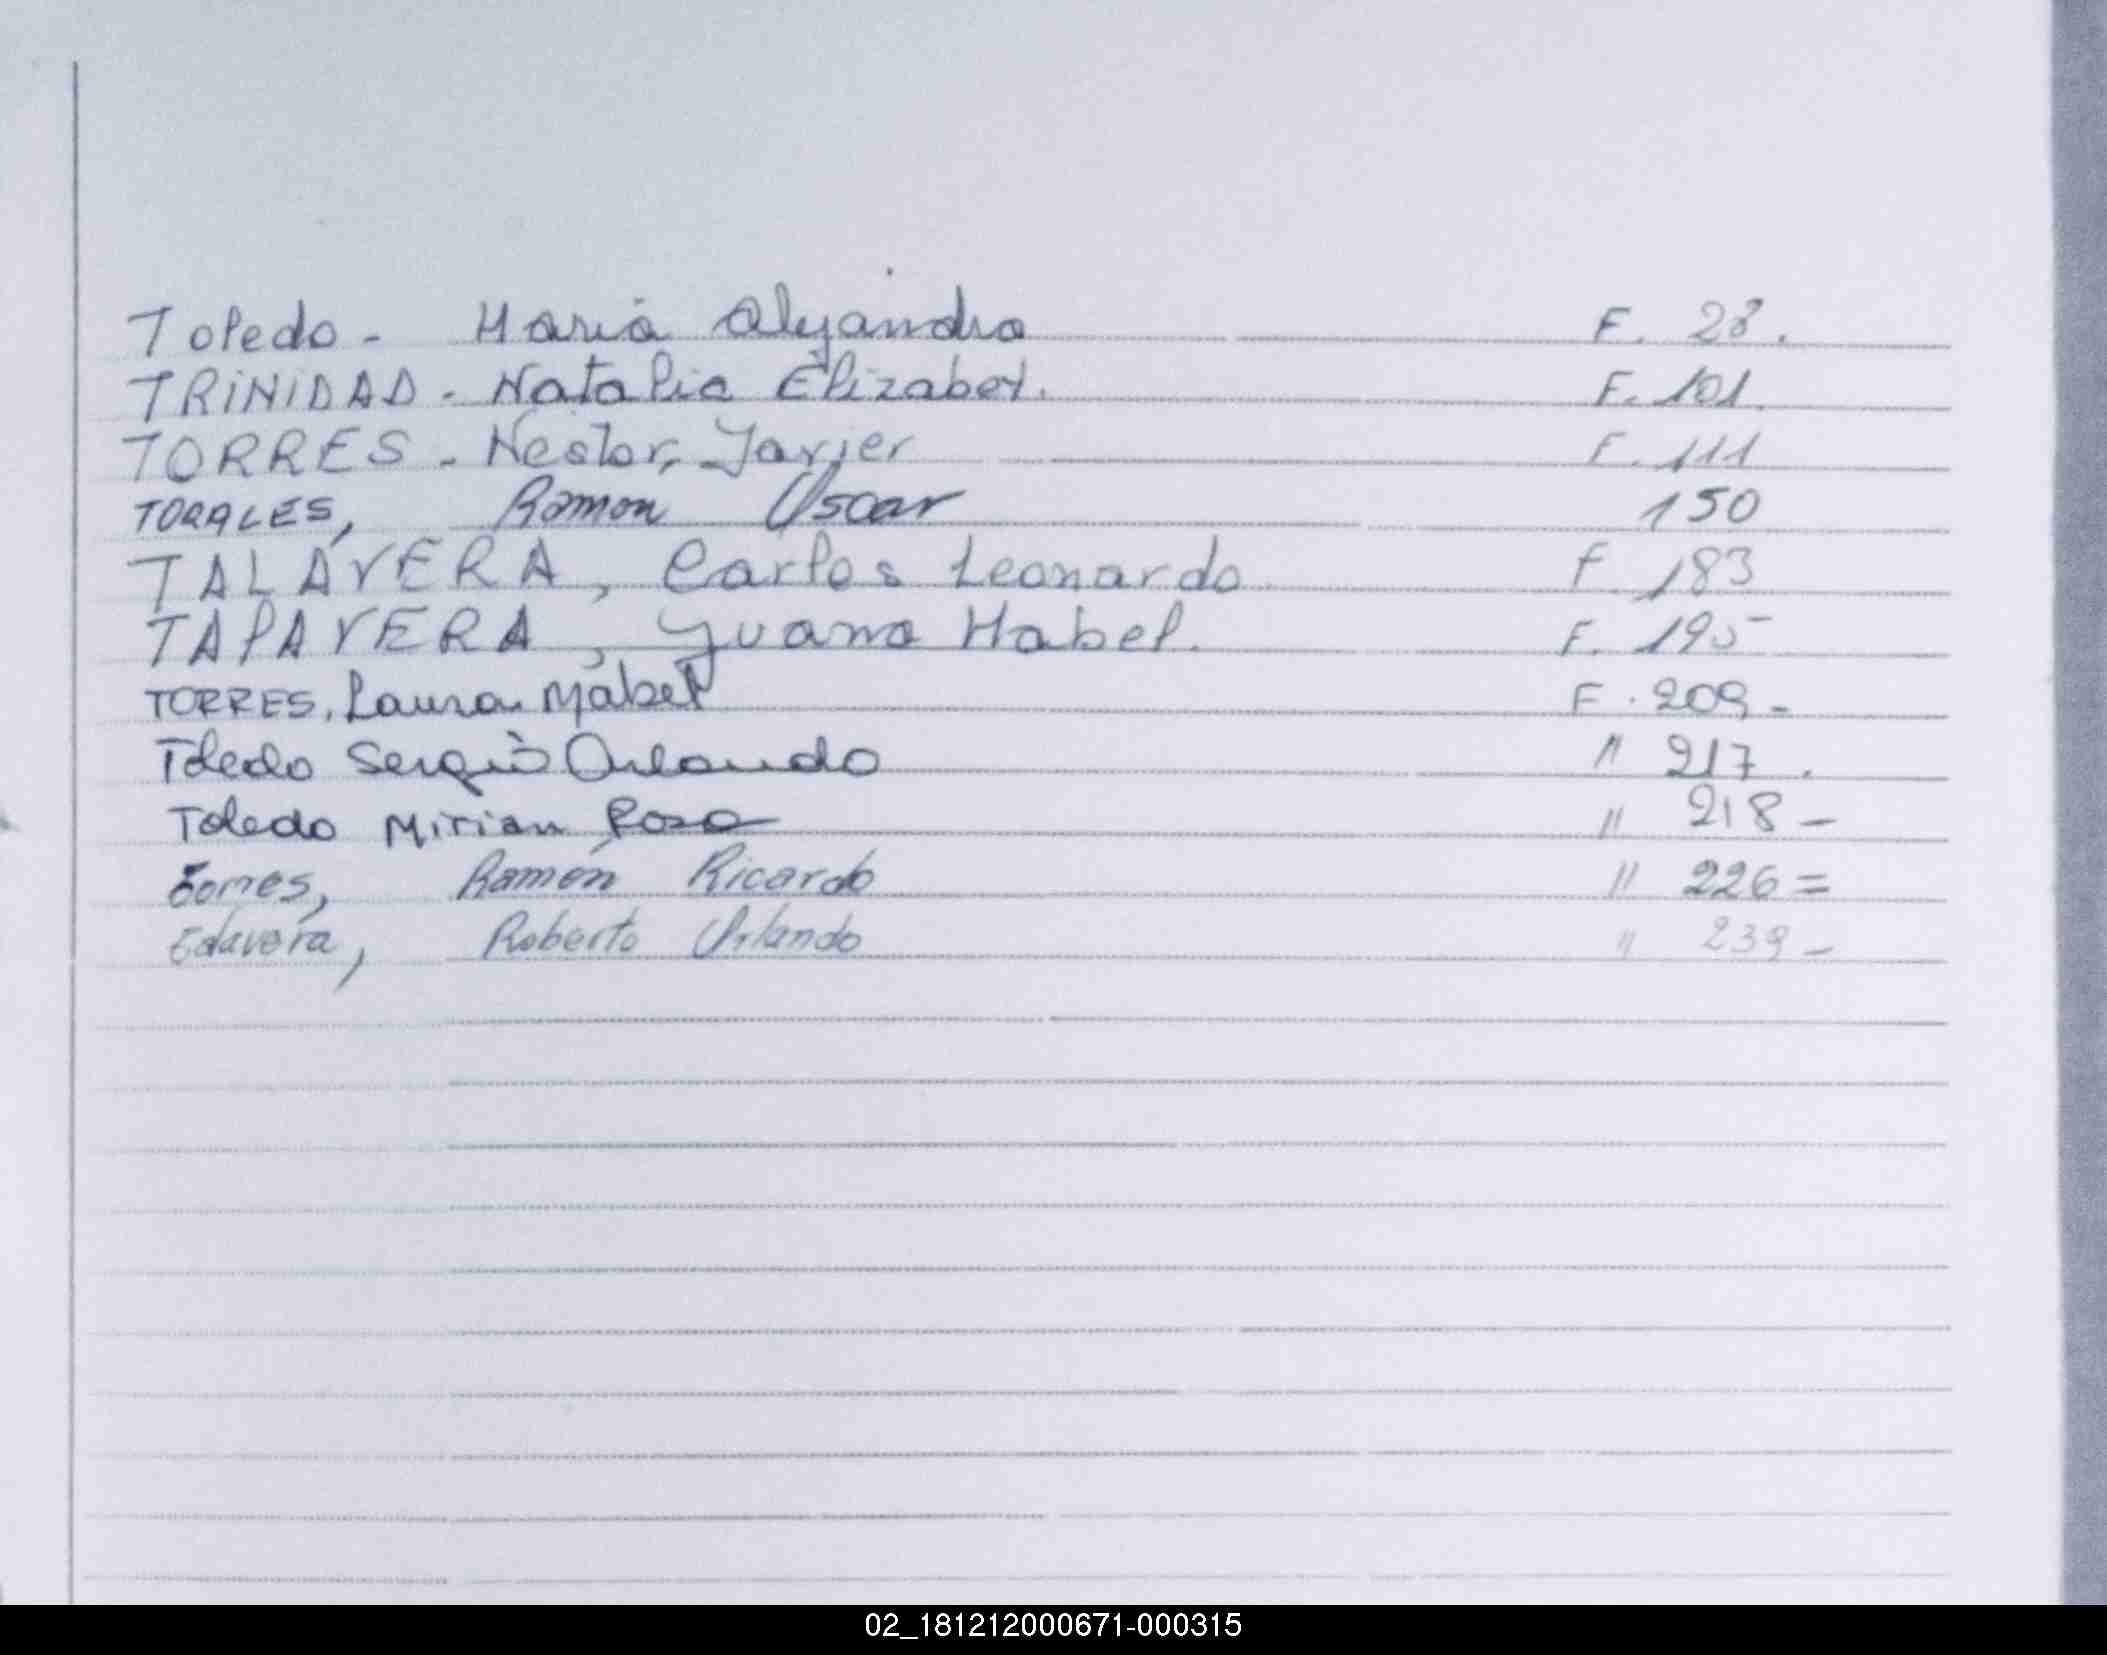 Toledo - Maria Alejandra F. 28.
TRINIDAD - Natalia Elizabet. F. 101.
TORRES - Nestor, Javier F. 111
TORALES, Ramon Oscar 150
TALAVERA, Carlos Leonardo F 183
TALAVERA, Juana Mabel. F. 195
TORRES, Laura Mabel F. 209-
Toledo Sergio Orlando " 217.
Toledo Mirian Rosa " 218-
Torres, Ramón Ricardo " 226=
Talavera, Roberto Orlando " 239-
02_181212000671-000315